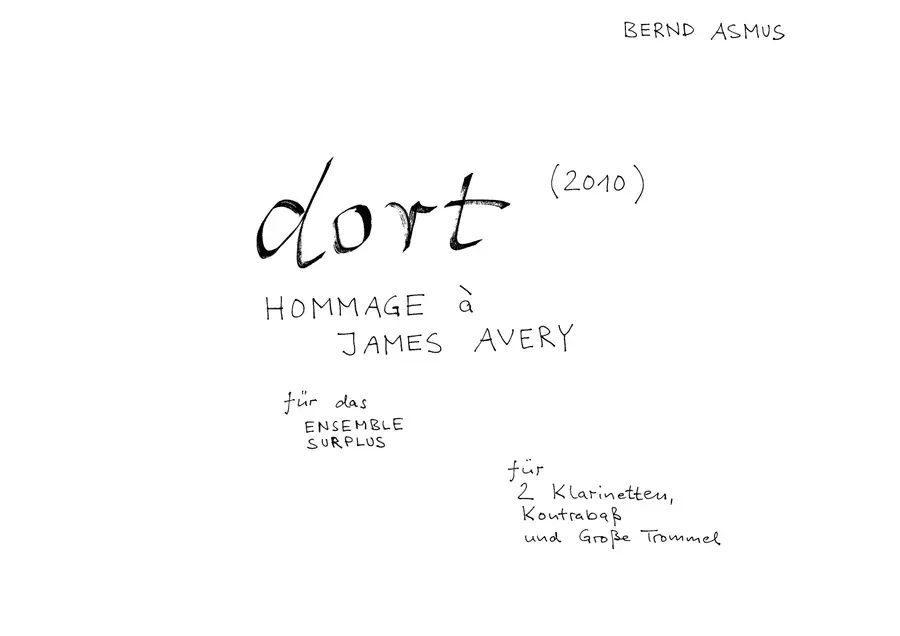 BERND ASMUS
dort (2010)
HOMMAGE à
JAMES AVERY
für das
ENSEMBLE
SURPLUS
für
2 Klarinetten,
Kontrabaß
und Große Trommel